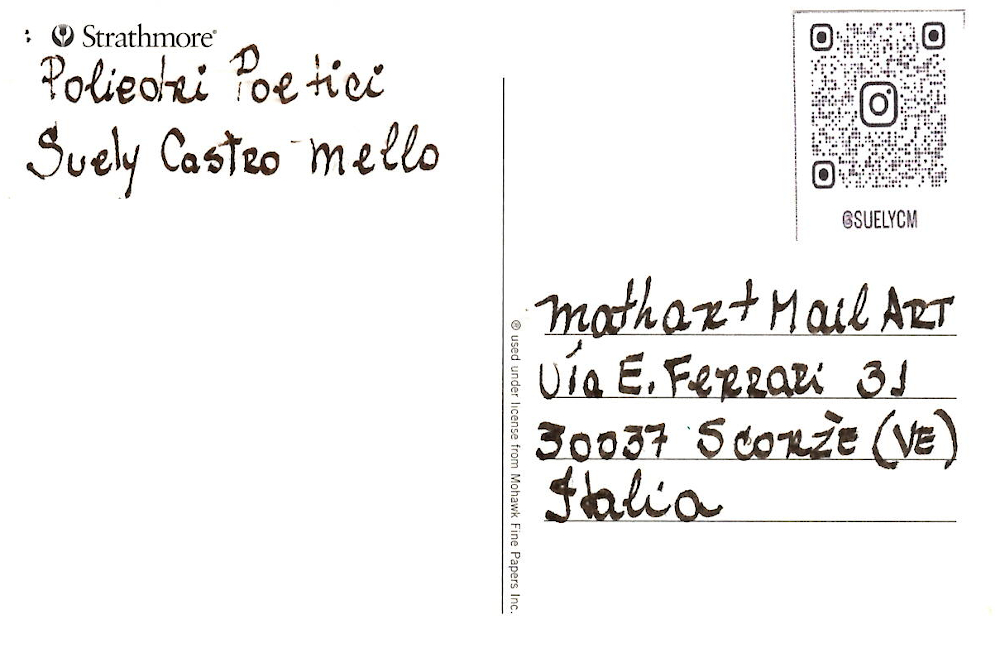 Strathmore®
Poliedri Poetici
Suely Castro Mello
@SUELYCM
mathart Mail ART
Vía E. Ferrari 31
30037 Scorzè (VE)
Italia
® used under license from Mohawk Fine Papers Inc.